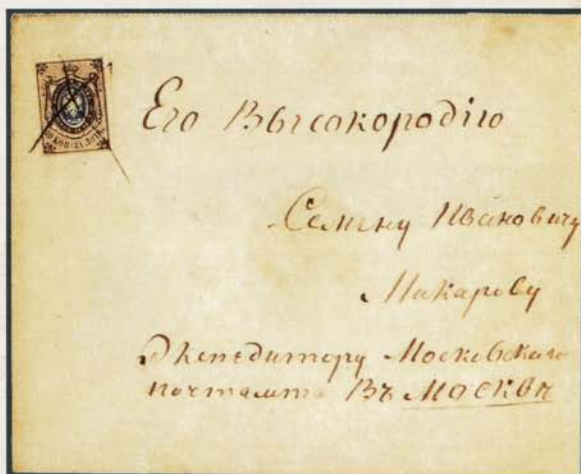 Его Высокородію
Семену Ивановичу
Макарову
Экспедитору Московскаго
почтамта Въ Москвѣ